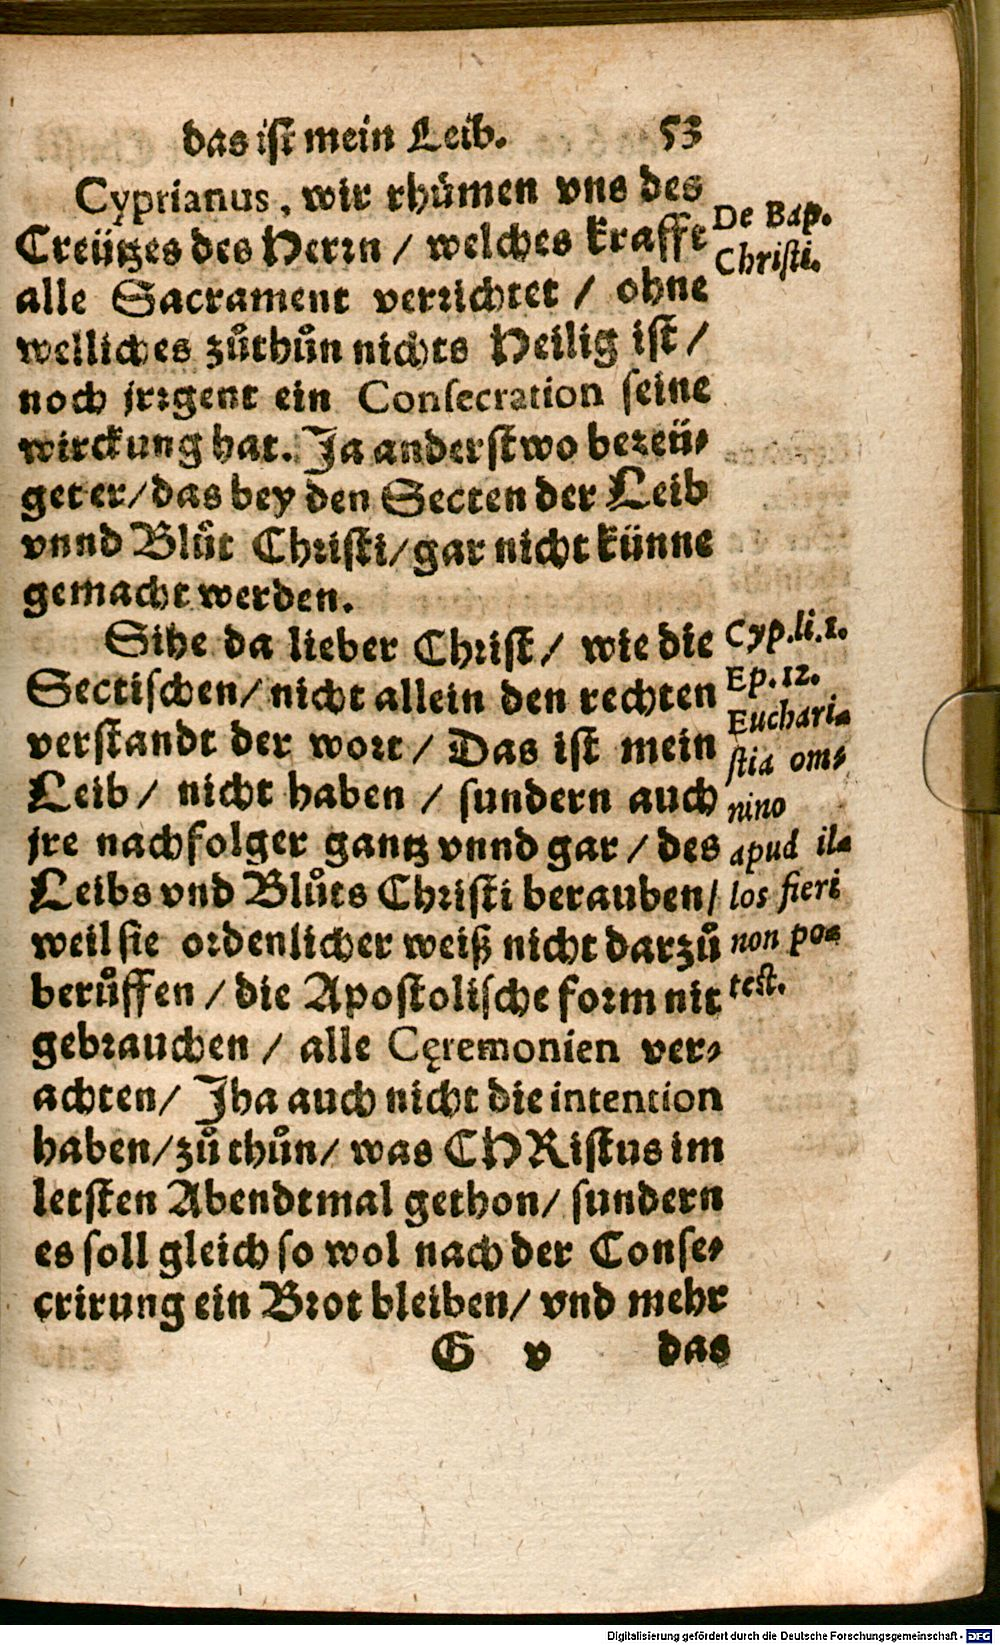 das ist mein Leib. 53
Cyprianus, wir rhümen vns des
Creützes des Herrn / welches krafft
alle Sacrament verrichtet / ohne
welliches zůthůn nichts Heilig ist /
noch jrrgent ein Consecration seine
wirckung hat. Ja anderstwo bezeü-
get er / das bey den Secten der Leib
vnnd Blůt Christi / gar nicht künne
gemacht werden.
De Bap.
Christi.
Sihe da lieber Christ / wie die
Sectischen / nicht allein den rechten
verstandt der wort / Das ist mein
Leib / nicht haben / sundern auch
jre nachfolger gantz vnnd gar / des
Leibs vnd Blůts Christi berauben /
weil sie ordenlicher weiß nicht darzů
berůffen / die Apostolische form nit
gebrauchen / alle Cęremonien ver-
achten / Jha auch nicht die intention
haben / zů thůn / was CHRistus im
letsten Abendtmal gethon / sundern
es soll gleich so wol nach der Conse-
crirung ein Brot bleiben / vnd mehr
Cyp.li.1.
Ep.12.
Euchari-
stia om-
nino
apud il-
los fieri
non po-
test.
G v das
Digitalisierung gefördert durch die Deutsche Forschungsgemeinschaft - DFG